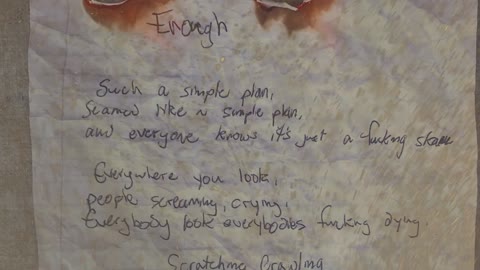 Enough
Such a simple plan,
Seamed like a simple plan,
and everyone knows it's just a fucking
Everywhere you look,
people screaming, crying.
Everybody look everybodies fucking dying.
Scratching Crawling